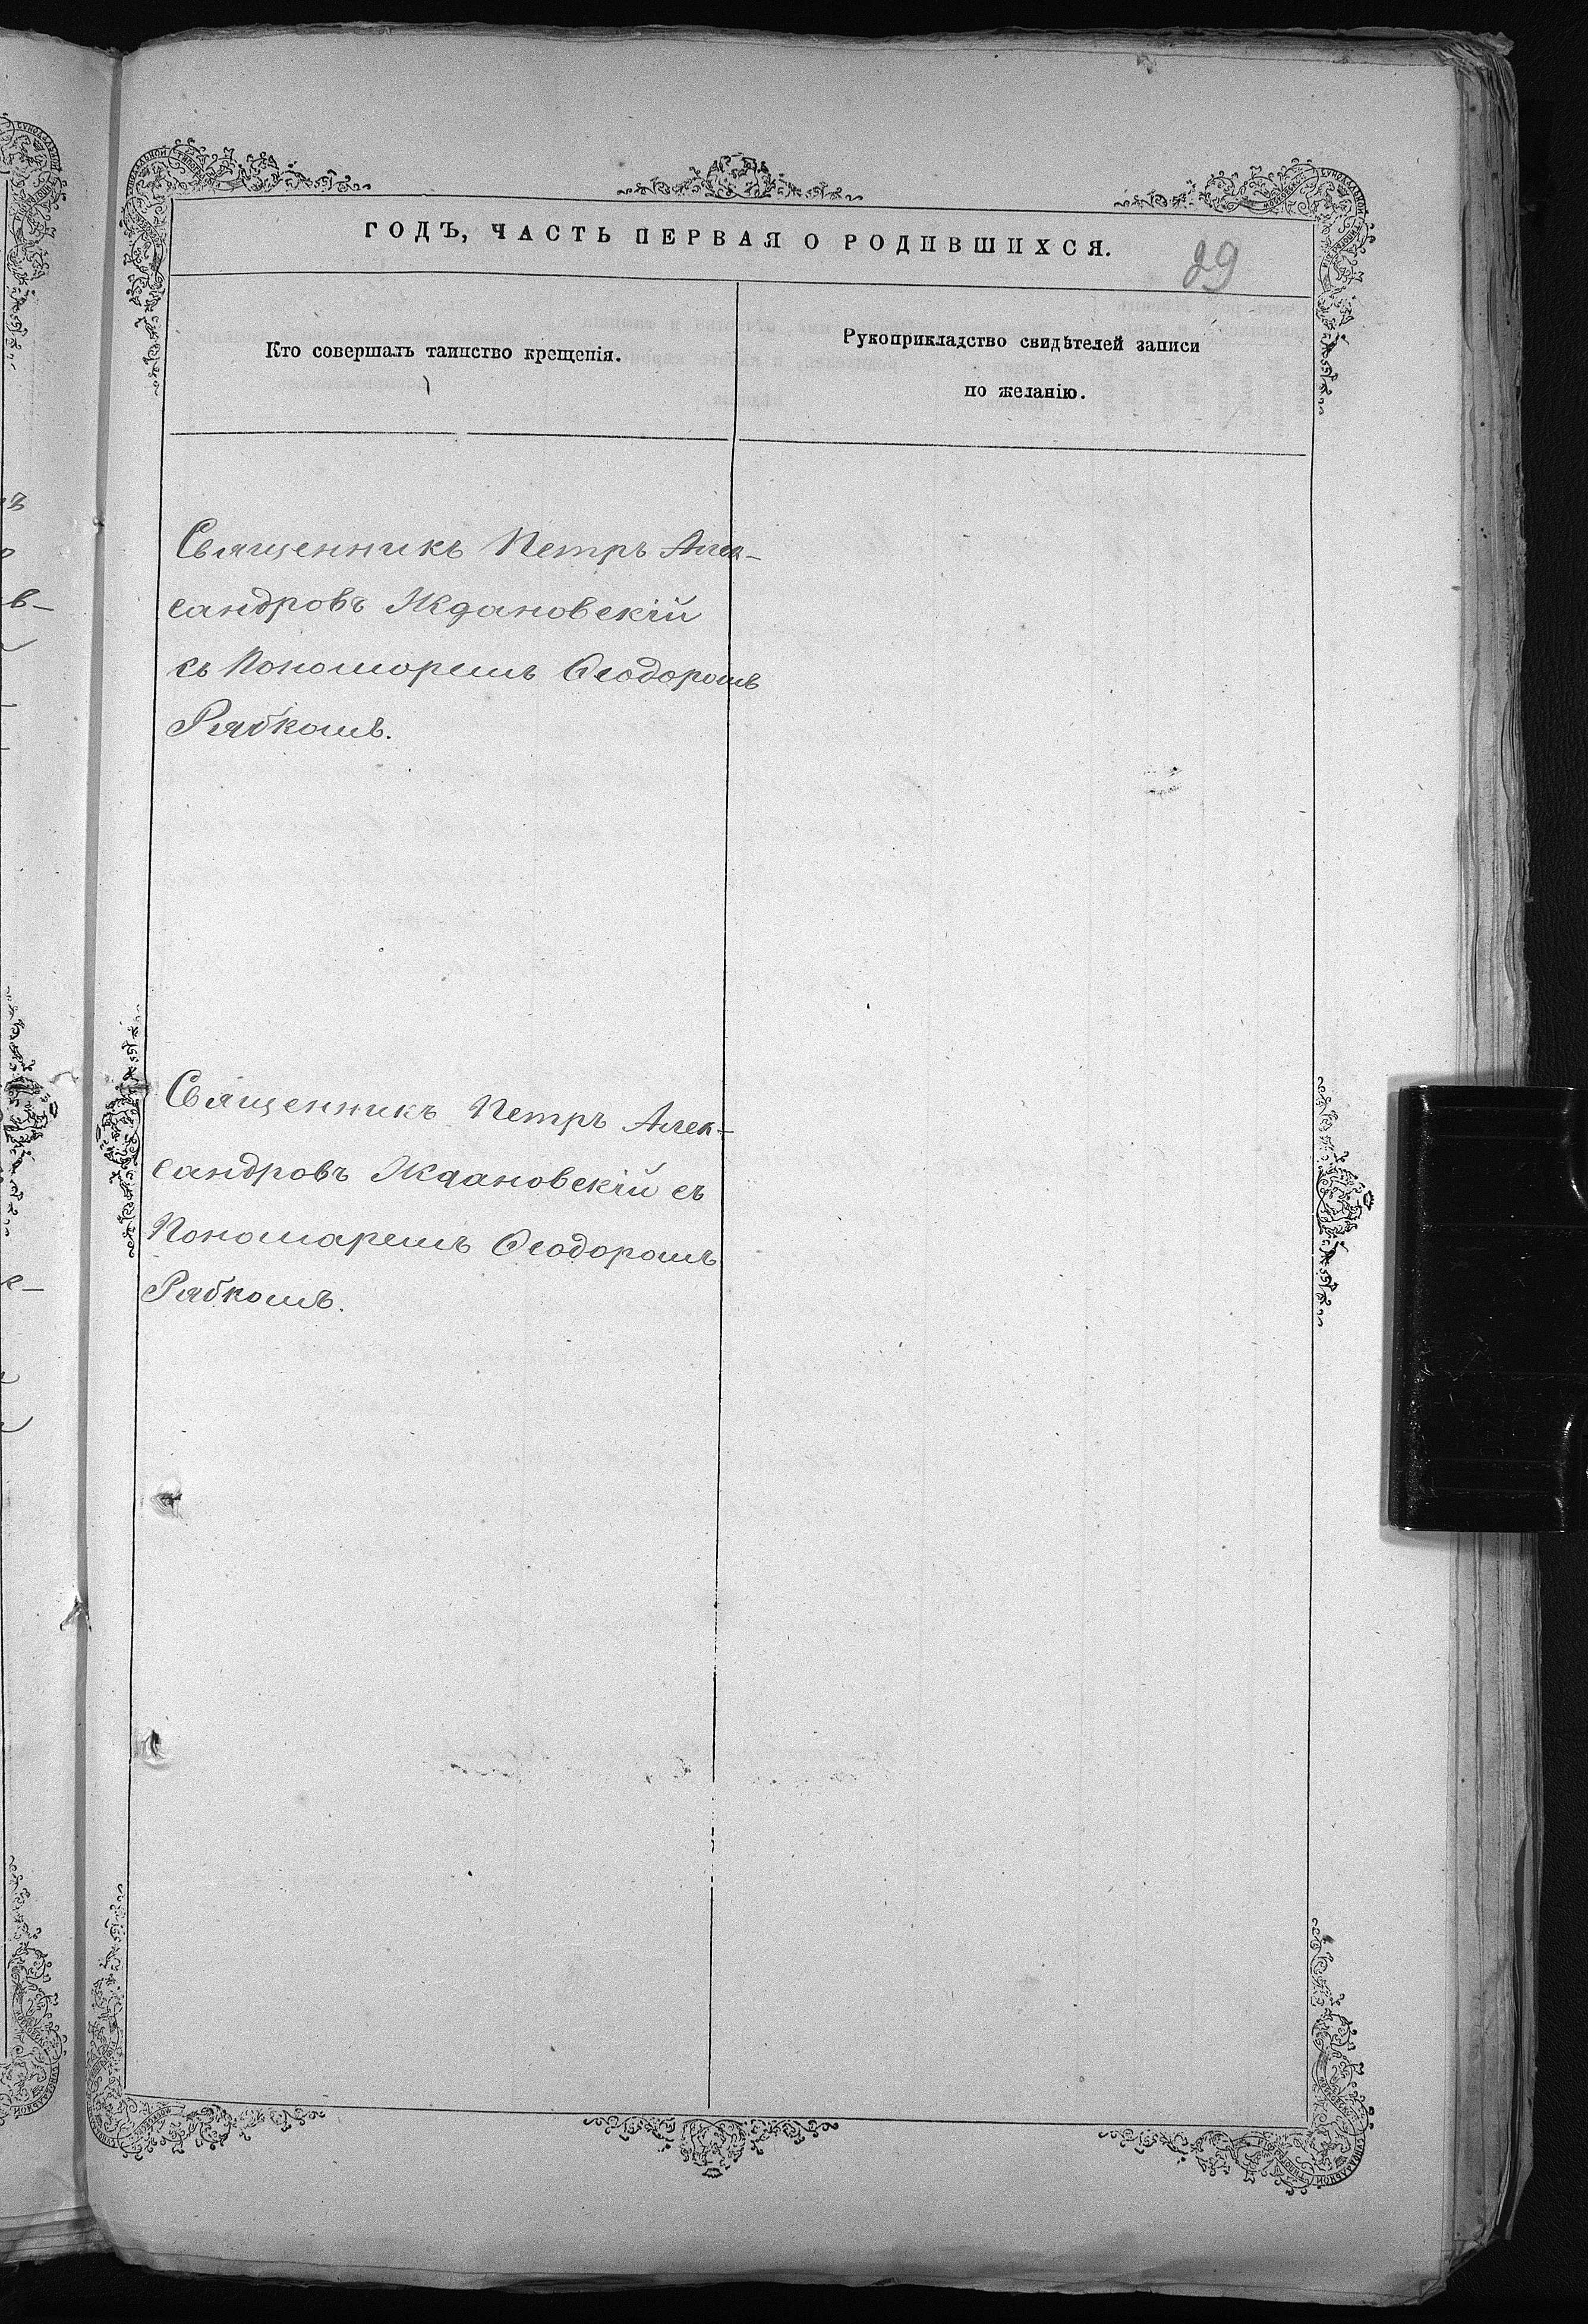 ГОДЪ, ЧАСТЬ ПЕРВАЯ О РОДИВШИХСЯ.
29
Кто совершалъ таинство крещенія.
Рукоприкладство свидѣтелей записи
по желанію.
Священникъ Петръ Алек-
сандровъ Ждановскій
съ Пономаремъ Ѳеодоромъ
Рябкомъ.
Священникъ Петръ Алек-
сандровъ Ждановскій съ
Пономаремъ Ѳеодоромъ
Рябкомъ.